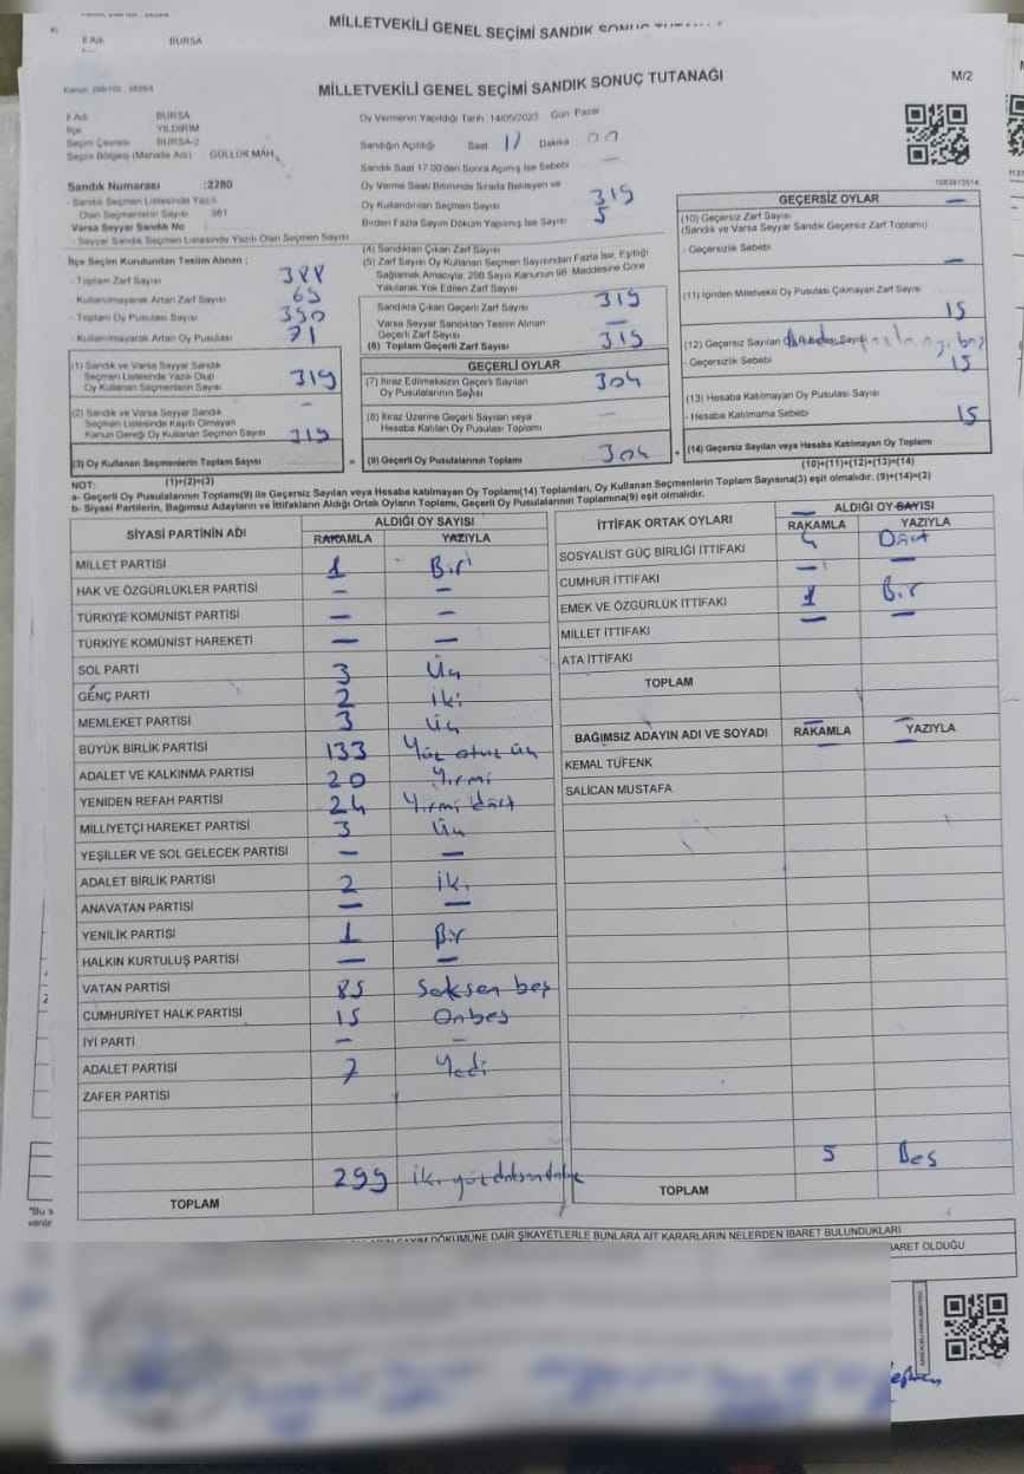 MİLLETVEKİLİ GENEL SEÇİMİ SANDIK
BURSA
MİLLETVEKİLİ GENEL SEÇİMİ SANDIK SONUÇ TUTANAĞI
M/2
İl Adı BURSA
İlçe YILDIRIM
Seçim Çevresi BURSA-2
Seçim Bölgesi (Mahalle Adı) GÜLLÜK MAH.
Sandık Numarası :2780
- Sandık Seçmen Listesinde Yazılı
Olan Seçmenlerin Sayısı 361
Varsa Seyyar Sandık No
- Seyyar Sandık Seçmen Listesinde Yazılı Olan Seçmen Sayısı
İlçe Seçim Kurulundan Teslim Alınan :
- Toplam Zarf Sayısı 388
- Kullanılmayarak Artan Zarf Sayısı 69
- Toplam Oy Pusulası Sayısı 390
- Kullanılmayarak Artan Oy Pusulası 71
(1) Sandık ve Varsa Seyyar Sandık
Seçmen Listesinde Yazılı Olup
Oy Kullanan Seçmenlerin Sayısı 319
(2) Sandık ve Varsa Seyyar Sandık -
Seçmen Listesinde Kayıtlı Olmayan
Kanun Gereği Oy Kullanan Seçmen Sayısı 319
(3) Oy Kullanan Seçmenlerin Toplam Sayısı
(1)+(2)=(3)
Oy Vermenin Yapıldığı Tarih: 14/05/2023 Gün Pazar
Sandığın Açıldığı Saat 17 Dakika 00
Sandık Saat 17.00'den Sonra Açılmış İse Sebebi —
Oy Verme Saati Bitiminde Sırada Bekleyen ve
Oy Kullandırılan Seçmen Sayısı 319
Birden Fazla Sayım Döküm Yapılmış İse Sayısı 5
(4) Sandıktan Çıkan Zarf Sayısı
(5) Zarf Sayısı Oy Kullanan Seçmen Sayısından Fazla İse, Eşitliği
Sağlamak Amacıyla; 298 Sayılı Kanunun 98. Maddesine Göre
Yakılarak Yok Edilen Zarf Sayısı
Sandıkta Çıkan Geçerli Zarf Sayısı 319
Varsa Seyyar Sandıktan Teslim Alınan —
Geçerli Zarf Sayısı
(6) Toplam Geçerli Zarf Sayısı 319
GEÇERLİ OYLAR
(7) İtiraz Edilmeksizin Geçerli Sayılan
Oy Pusulalarının Sayısı 304
(8) İtiraz Üzerine Geçerli Sayılan veya
Hesaba Katılan Oy Pusulası Toplamı —
(9) Geçerli Oy Pusulalarının Toplamı 304
GEÇERSİZ OYLAR
(10) Geçersiz Zarf Sayısı —
(Sandık ve Varsa Seyyar Sandık Geçersiz Zarf Toplamı)
- Geçersizlik Sebebi
—
(11) İçinden Milletvekili Oy Pusulası Çıkmayan Zarf Sayısı
15
(12) Geçersiz Sayılan
- Geçersizlik Sebebi 15
(13) Hesaba Katılmayan Oy Pusulası Sayısı
- Hesaba Katılmama Sebebi 15
(14) Geçersiz Sayılan veya Hesaba Katılmayan Oy Toplamı
(10)+(11)+(12)+(13)=(14)
NOT:
a- Geçerli Oy Pusulalarının Toplamı(9) ile Geçersiz Sayılan veya Hesaba katılmayan Oy Toplamı(14) Toplamları, Oy Kullanan Seçmenlerin Toplam Sayısına(3) eşit olmalıdır. (9)+(14)=(3)
b- Siyasi Partilerin, Bağımsız Adayların ve İttifakların Aldığı Ortak Oyların Toplamı, Geçerli Oy Pusulalarının Toplamına(9) eşit olmalıdır.
SİYASİ PARTİNİN ADI ALDIĞI OY SAYISI
RAKAMLA YAZIYLA
MİLLET PARTİSİ 1 Bir
HAK VE ÖZGÜRLÜKLER PARTİSİ — —
TÜRKİYE KOMÜNİST PARTİSİ — —
TÜRKİYE KOMÜNİST HAREKETİ — —
SOL PARTİ 3 Üç
GENÇ PARTİ 2 iki
MEMLEKET PARTİSİ 3 üç
BÜYÜK BİRLİK PARTİSİ 133 Yüz otuz üç
ADALET VE KALKINMA PARTİSİ 20 Yirmi
YENİDEN REFAH PARTİSİ 24 Yirmi dört
MİLLİYETÇİ HAREKET PARTİSİ 3 Üç
YEŞİLLER VE SOL GELECEK PARTİSİ — —
ADALET BİRLİK PARTİSİ 2 İki
ANAVATAN PARTİSİ — —
YENİLİK PARTİSİ 1 Bir
HALKIN KURTULUŞ PARTİSİ — —
VATAN PARTİSİ 85 Seksen beş
CUMHURİYET HALK PARTİSİ 15 Onbeş
İYİ PARTİ — —
ADALET PARTİSİ 7 Yedi
ZAFER PARTİSİ
299 iki yüz doksan dokuz
TOPLAM
İTTİFAK ORTAK OYLARI ALDIĞI OY SAYISI
RAKAMLA YAZIYLA
SOSYALİST GÜÇ BİRLİĞİ İTTİFAKI 4 Dört
CUMHUR İTTİFAKI — —
EMEK VE ÖZGÜRLÜK İTTİFAKI 1 Bir
MİLLET İTTİFAKI — —
ATA İTTİFAKI
TOPLAM
BAĞIMSIZ ADAYIN ADI VE SOYADI RAKAMLA YAZIYLA
KEMAL TÜFENK
SALİCAN MUSTAFA
5 Beş
TOPLAM
DÖKÜMÜNE DAİR ŞİKAYETLERLE BUNLARA AİT KARARLARIN NELERDEN İBARET BULUNDUKLARI
İBARET OLDUĞU